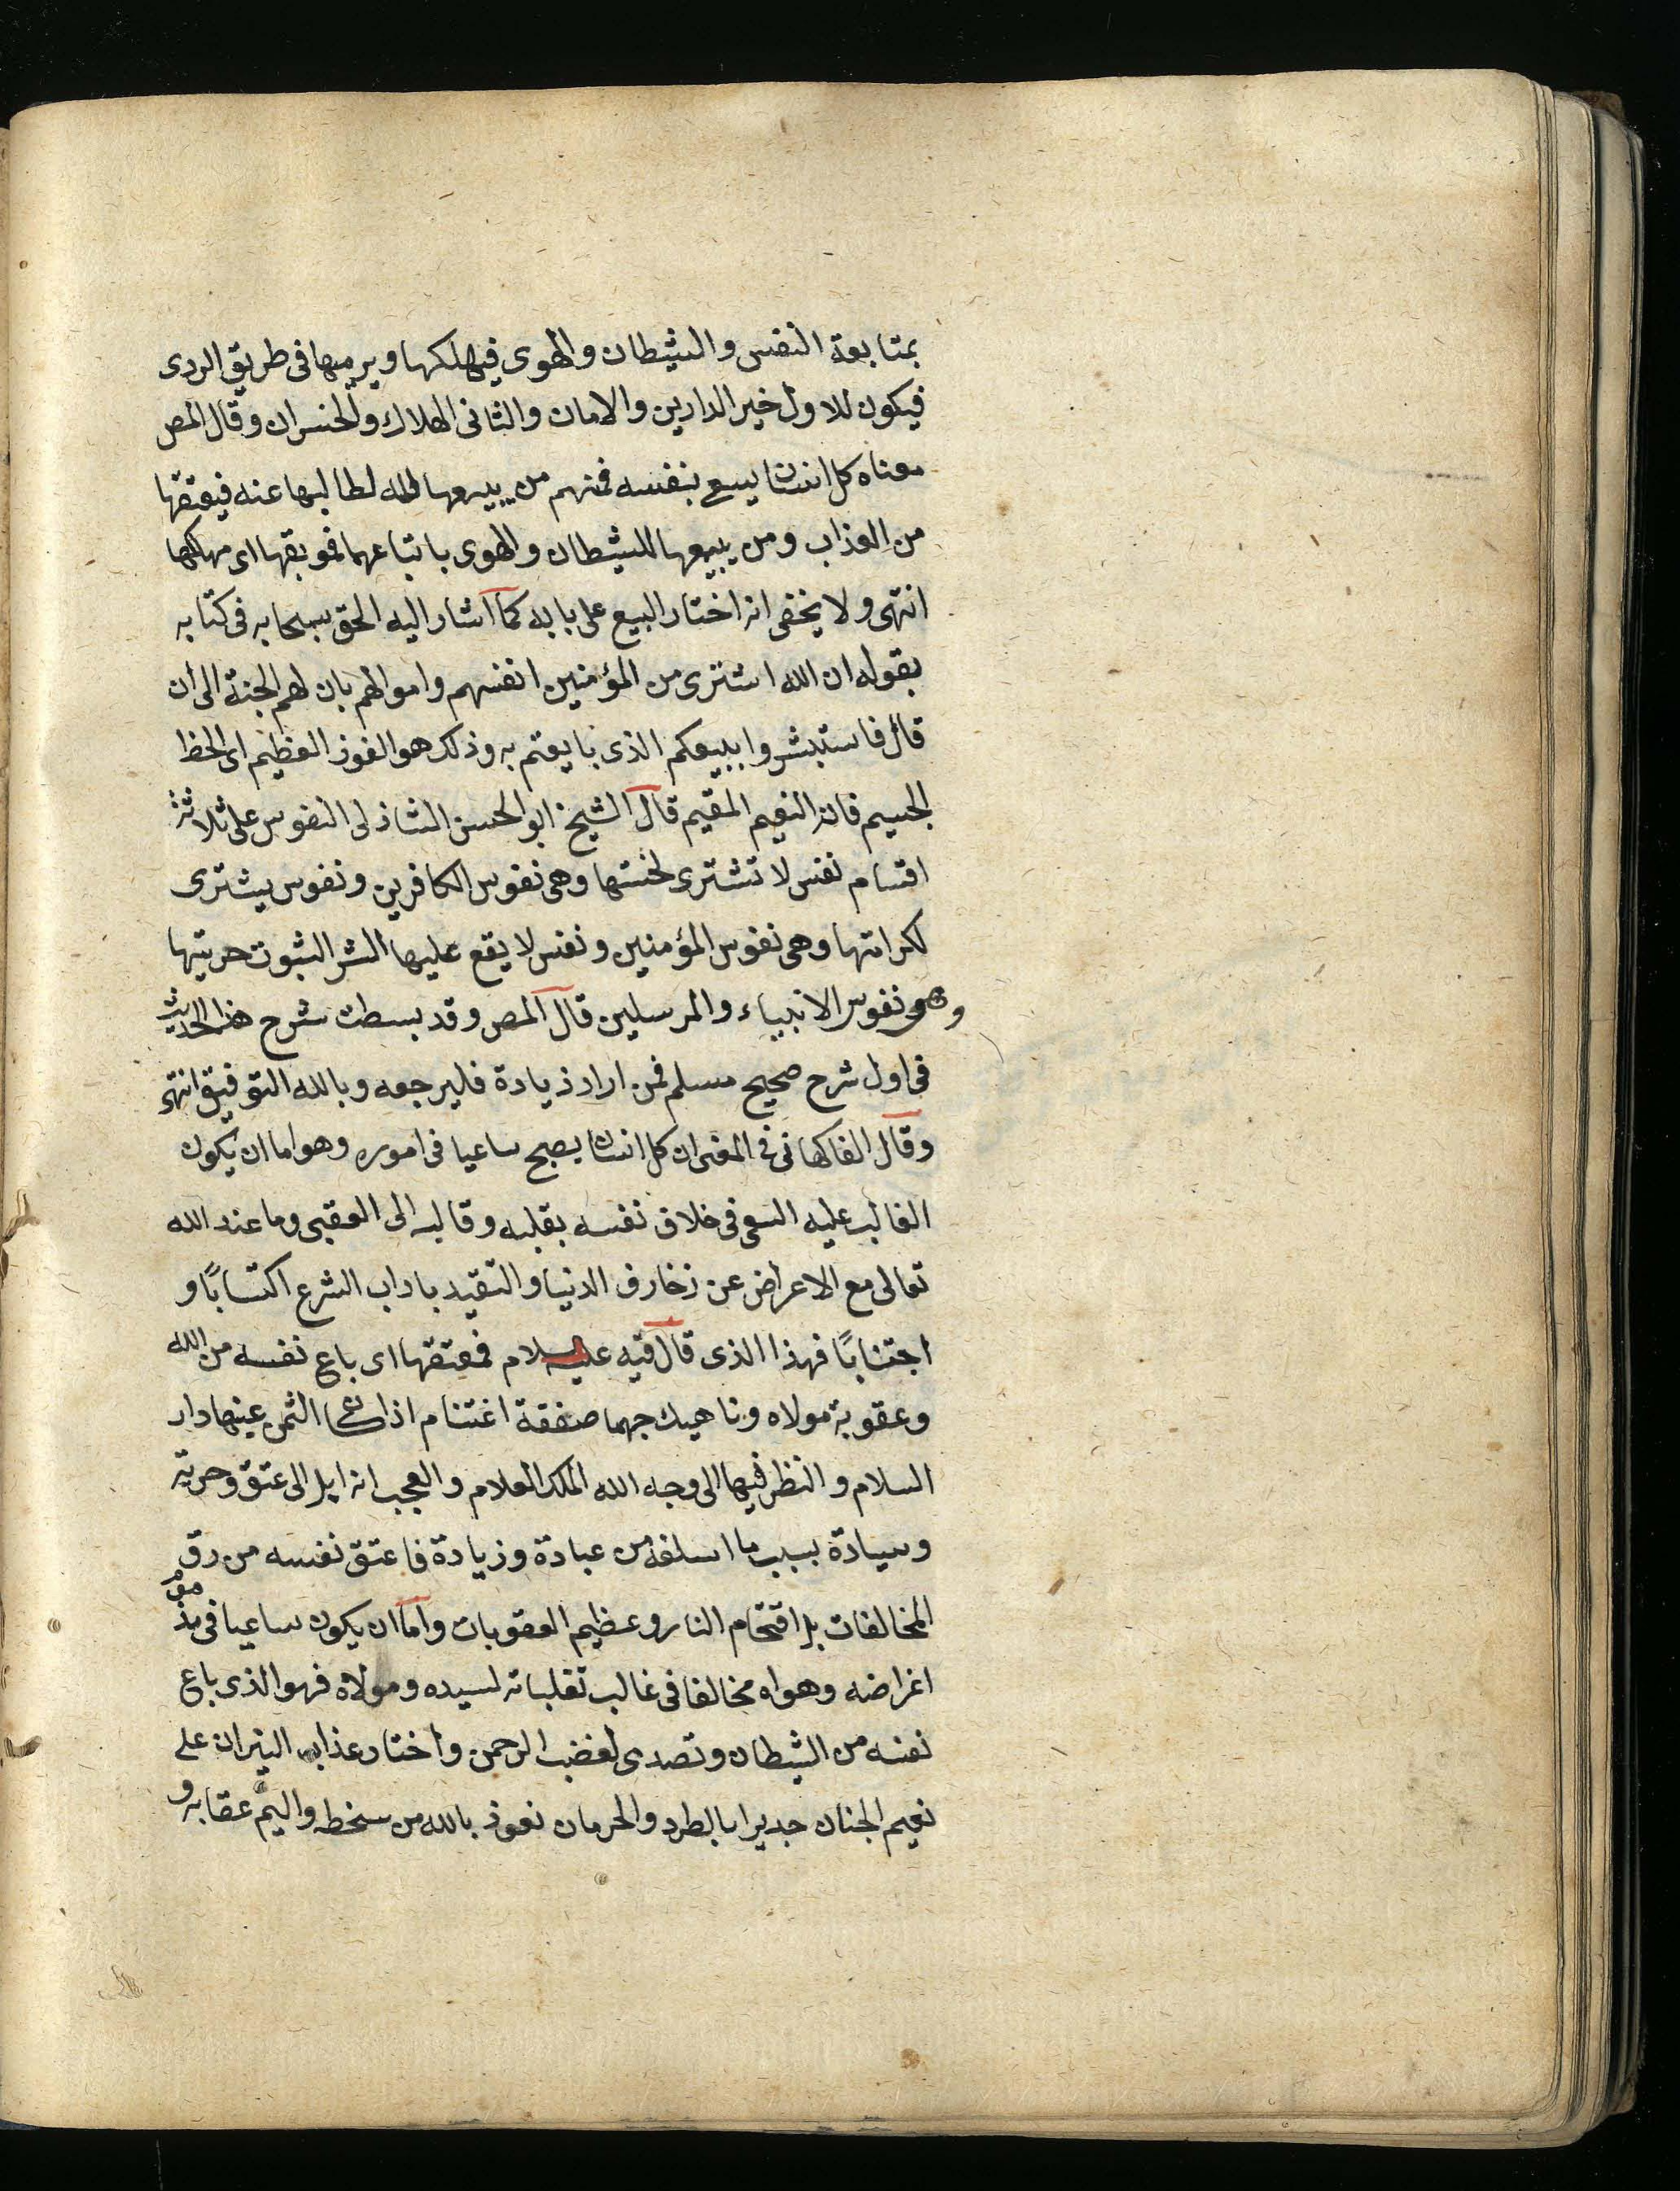 بمتابعة النفس والشيطان والهوى فيهلكها ويرميها فى طريق الردى
فيكون للاول خير الدارين والامان والثانى الهلاك والخسران وقال المص
معناه كل انسان يسع بنفسه فمنهم من يبيعها لله لطالبها عنه فيعتقها
من العذاب ومن يبيعها للشيطان والهوى باتباعهما فموبقها اى مهلكها
انتهى ولا يخفى انه اختار البيع على بابه كما اشار اليه الحق سبحانه فى كتابه
بقوله ان الله اشترى من المؤمنين انفسهم واموالهم بان لهم الجنة الى ان
قال فاستبشروا ببيعكم الذى بايعتم به وذلك هو الفوز العظيم اى الحظ
الجسيم فانه النعيم المقيم قال الشيخ ابو الحسن الشاذلى النفوس على ثلاثة
اقسام نفس لا تشترى لخستها وهى نفوس الكافرين ونفوس يشترى
لكرامتها وهى نفوس المؤمنين ونفس لا يقع عليها الشر الثبوت حريتها
وهى نفوس الانبياء والمرسلين قال المص وقد بسطت شرح هذا الحديث
فى اول شرح صحيح مسلم فمن اراد زيادة فليرجعه وبالله التوفيق انتهى
وقال الفاكهانى فى المعنى ان كل انسان يصبح ساعيا فى اموره وهو اما ان يكون
الغالب عليه السعى فى خلاف نفسه بقلبه وقالبه الى العقبى وما عند الله
تعالى مع الاعراض عن زخارف الدنيا والتقيد باداب الشرع اكتسابًا و
اجتنابًا فهذا الذى قال فيه عليه السلام فمعتقها اى باع نفسه من الله
وعقوبة مولاه وناهيك بهما صفقة اغتنام اذ الثمن عينها دار
السلام والنظر فيها الى وجه الله الملك العلام والعجب انه ايل الى عتق وحرية
وسيادة بسبب ما اسلفه من عبادة وزيادة فاعتق نفسه من رق
المخالفات بل اقتحام النار وعظيم العقوبات واما ان يكون ساعيا فى
اغراضه وهواه مخالفا فى غالب تقلباته لسيده ومولاه فهو الذى باع
نفسه من الشيطان وتصدى لغضب الرحمن واختار عذاب النيران على
نعيم الجنان جديرا بالطرد والحرمان نعوذ بالله من سخطه واليم عقابه و